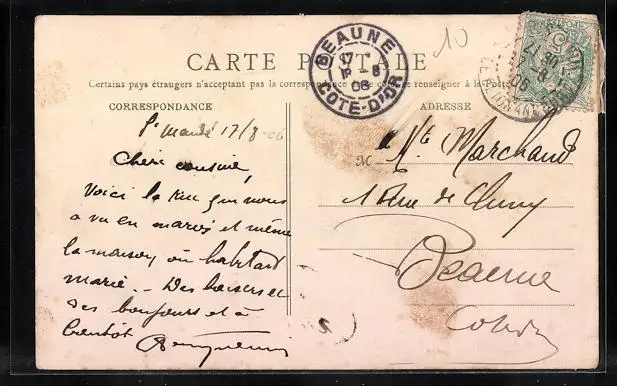 CARTE POSTALE
Certains pays étrangers n'acceptant pas la correspondance se renseigner à la Poste
CORRESPONDANCE
ADRESSE
BEAUNE
17-8
06
COTE-D'OR
10
St Mandé 17/8 06
Chère cousine,
Voici la rue qui nous
a vu en mariés et même
la maison où habitait
marie. - Des baisers et
des bonjours et à
bientôt
M
Marchand
1 Rue de Cluny
Beaune